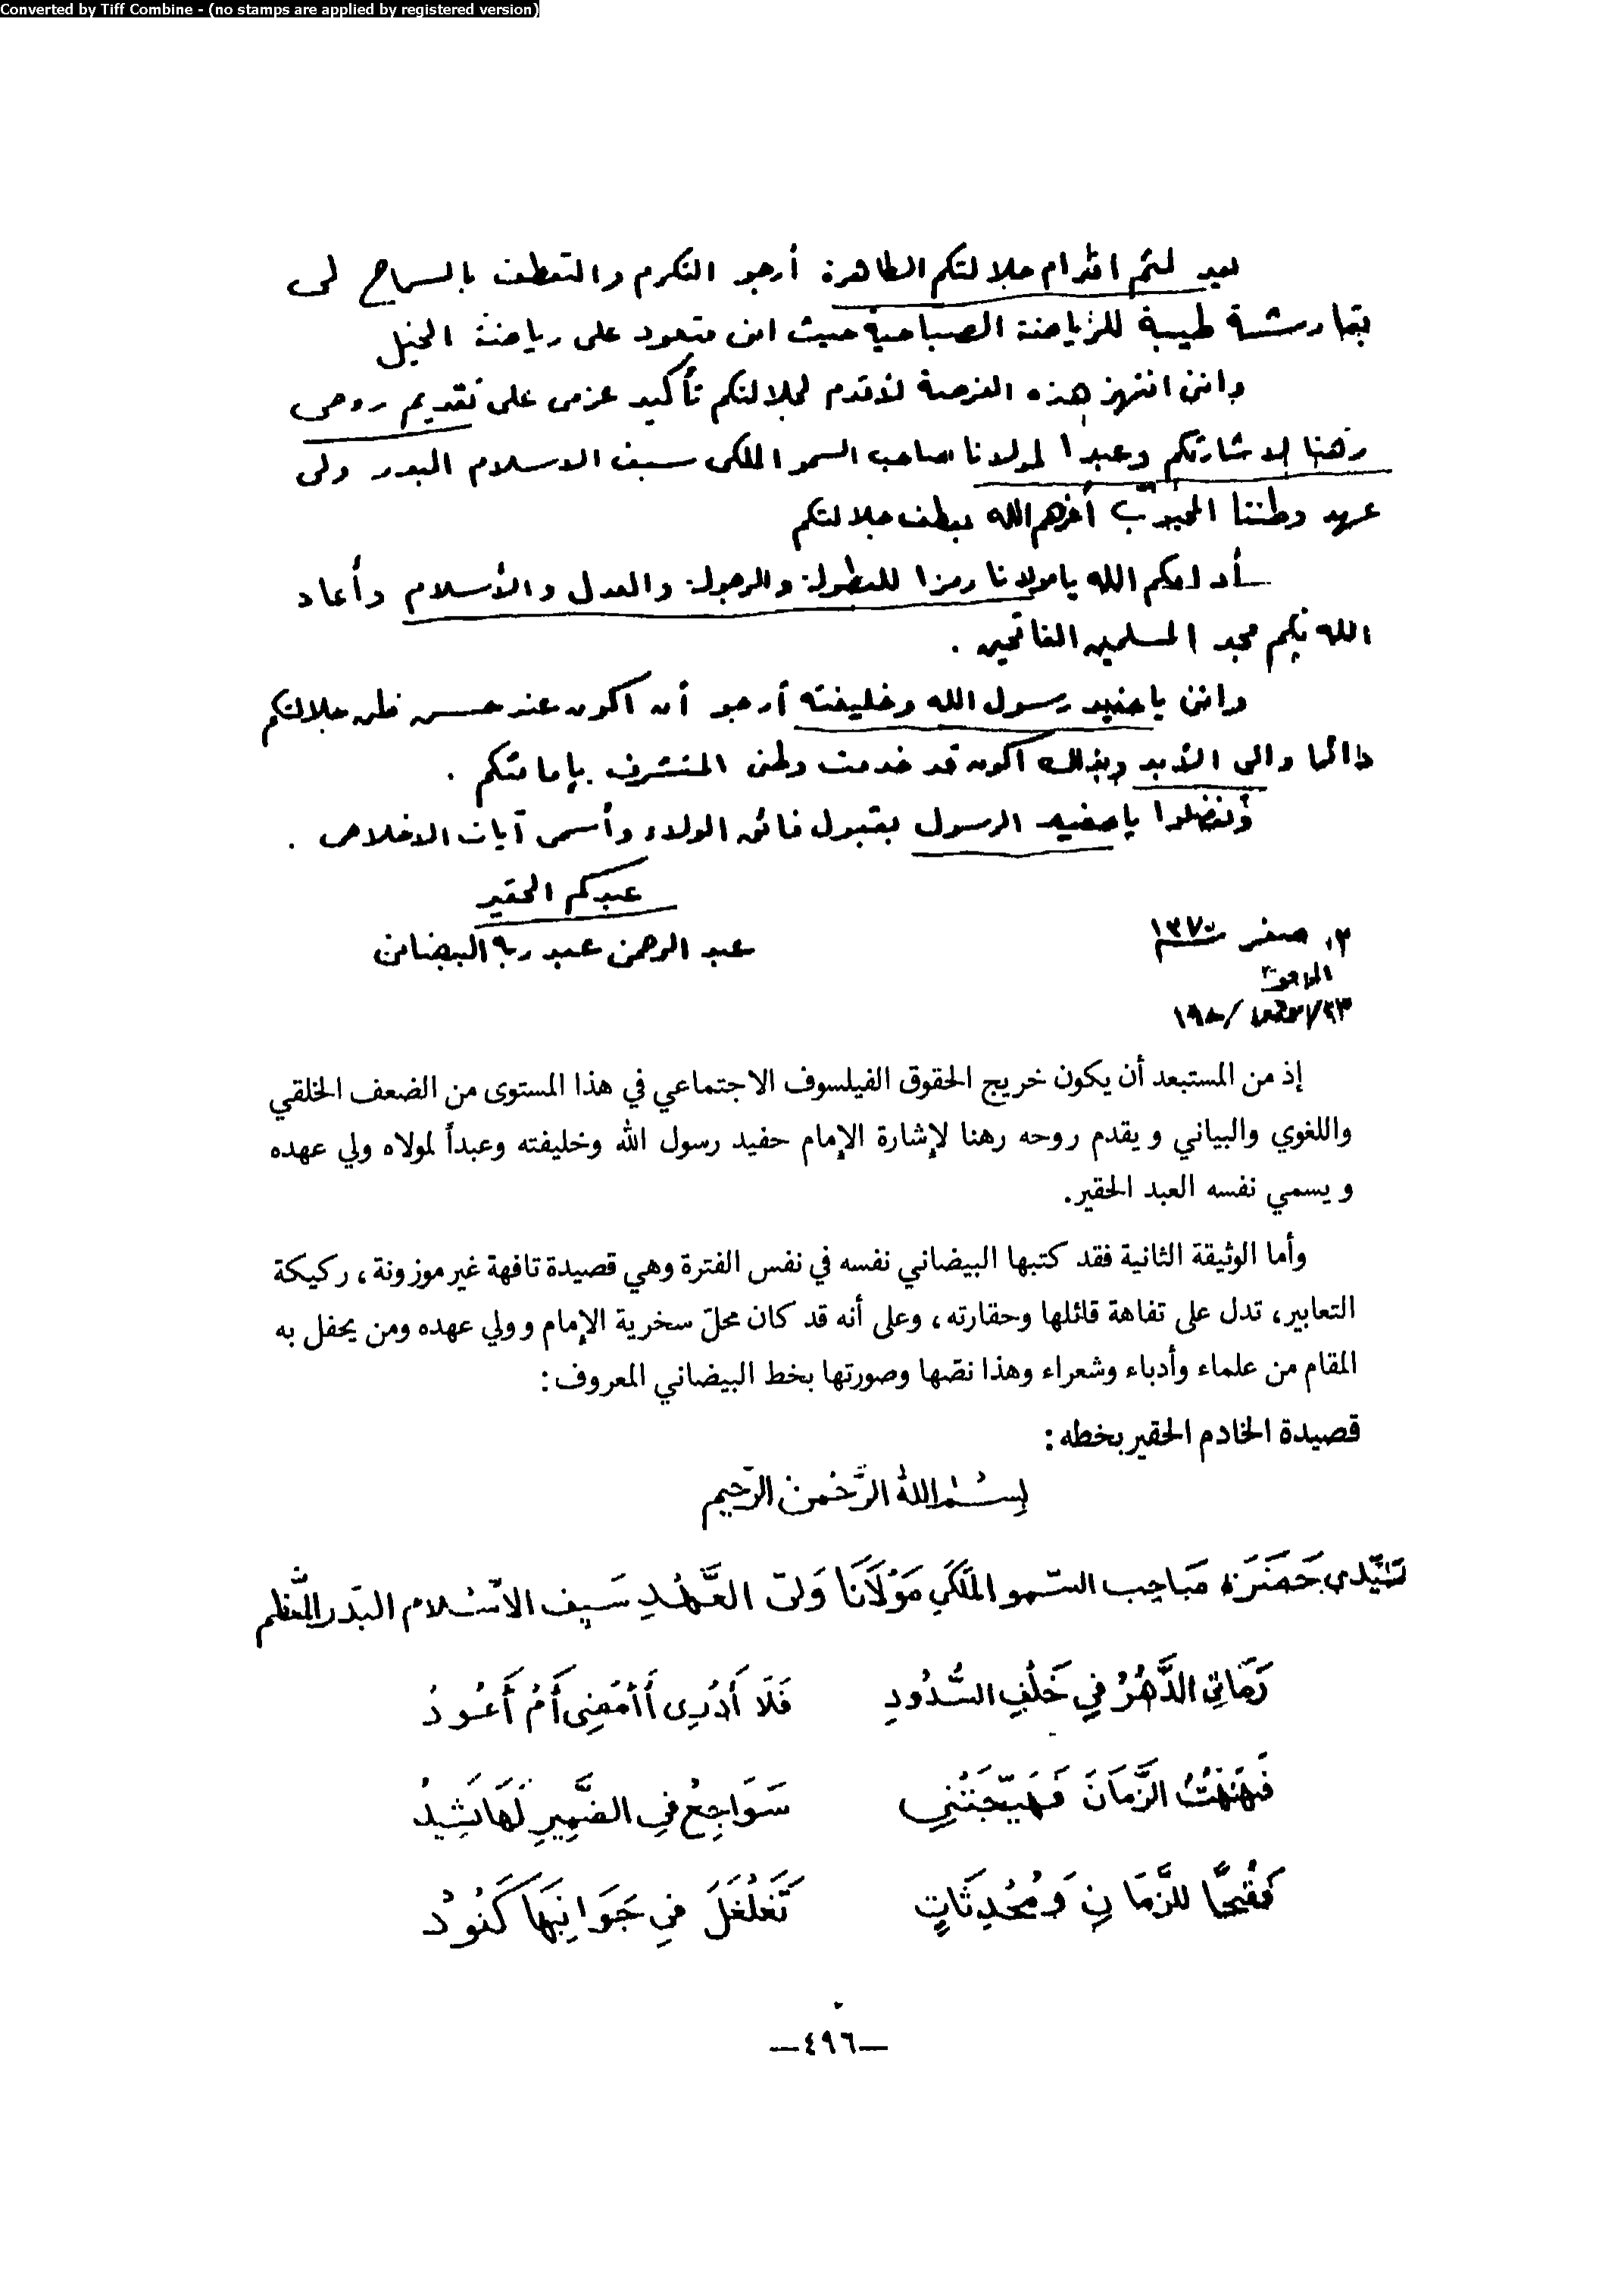 Converted by Tiff Combine - (no stamps are applied by registered version)
بعد لثم اقدام جلالتكم الطاهرة أرجو التكرم والتعطف بالسماح لى
طيبة للرياضة الصباحية حيث انى متعود على رياضة الخيل
وانى انتهز هذه الفرصة لأقدم لجلالتكم تأكيد عزمى على تقديم روحى
رهنا لاشارتكم وعبدا لمولانا صاحب السمو الملكى سيف الاسلام البدر ولى
عهد وطننا المحبوب أعزهم الله بعطف جلالتكم
أدامكم الله يا مولانا رمزا للبطولة والرجولة والعدل والأسلام وأعاد
الله بكم مجد المسلمين الفاتحين .
وانى يا حفيد رسول الله وخليفته أرجو أن أكون عند حسن ظن جلالتكم
دائما والى الأبد وبذلك أكون قد خدمت وطنى المتشرف بإمامتكم .
وتفضلوا يا حفيد الرسول بقبول فائق الولاء وأسمى آيات الاخلاص .
عبدكم الحقير
عبد الرحمن عبد ربه البيضانى
صفر ١٣٧٠
الموافق
إذ من المستبعد أن يكون خريج الحقوق الفيلسوف الاجتماعي في هذا المستوى من الضعف الخلقي
واللغوي والبياني ويقدم روحه رهنا لإشارة الإمام حفيد رسول الله وخليفته وعبداً لمولاه ولي عهده
ويسمي نفسه العبد الحقير.
وأما الوثيقة الثانية فقد كتبها البيضاني نفسه في نفس الفترة وهي قصيدة تافهة غير موزونة، ركيكة
التعابير، تدل على تفاهة قائلها وحقارته، وعلى أنه قد كان محلّ سخرية الإمام وولي عهده ومن يحفل به
المقام من علماء وأدباء وشعراء وهذا نصّها وصورتها بخط البيضاني المعروف:
قصيدة الخادم الحقير بخطه:
بِسْمِ اللهِ الرَّحْمنِ الرَّحِيمِ
سَيِّدي حَضْرَة صَاحِب السّمو المَلَكي مَوْلَانَا وَلىّ العَهْدِ سَيف الاسْلام البَدر المعَظَّم
رَمَانِى الدَّهْرُ فِي خَلْفِ السُّدُودِ فَلَا أَدْرِى أَأَمْضِى أَمْ أَعُودُ
فَنَهْنَهْتُ الزَّمَانَ فَهَيّجَتْنِي سَوَاجِعُ فِي الضَّمِيرِ لَهَا نَشِيدُ
فَقُبْحًا لِلزَّمَانِ وَمُحْدِثَاتٍ تَغَلْغَلَ فِي جَوَانِبِهَا كَنُودُ
—٤٩٦—